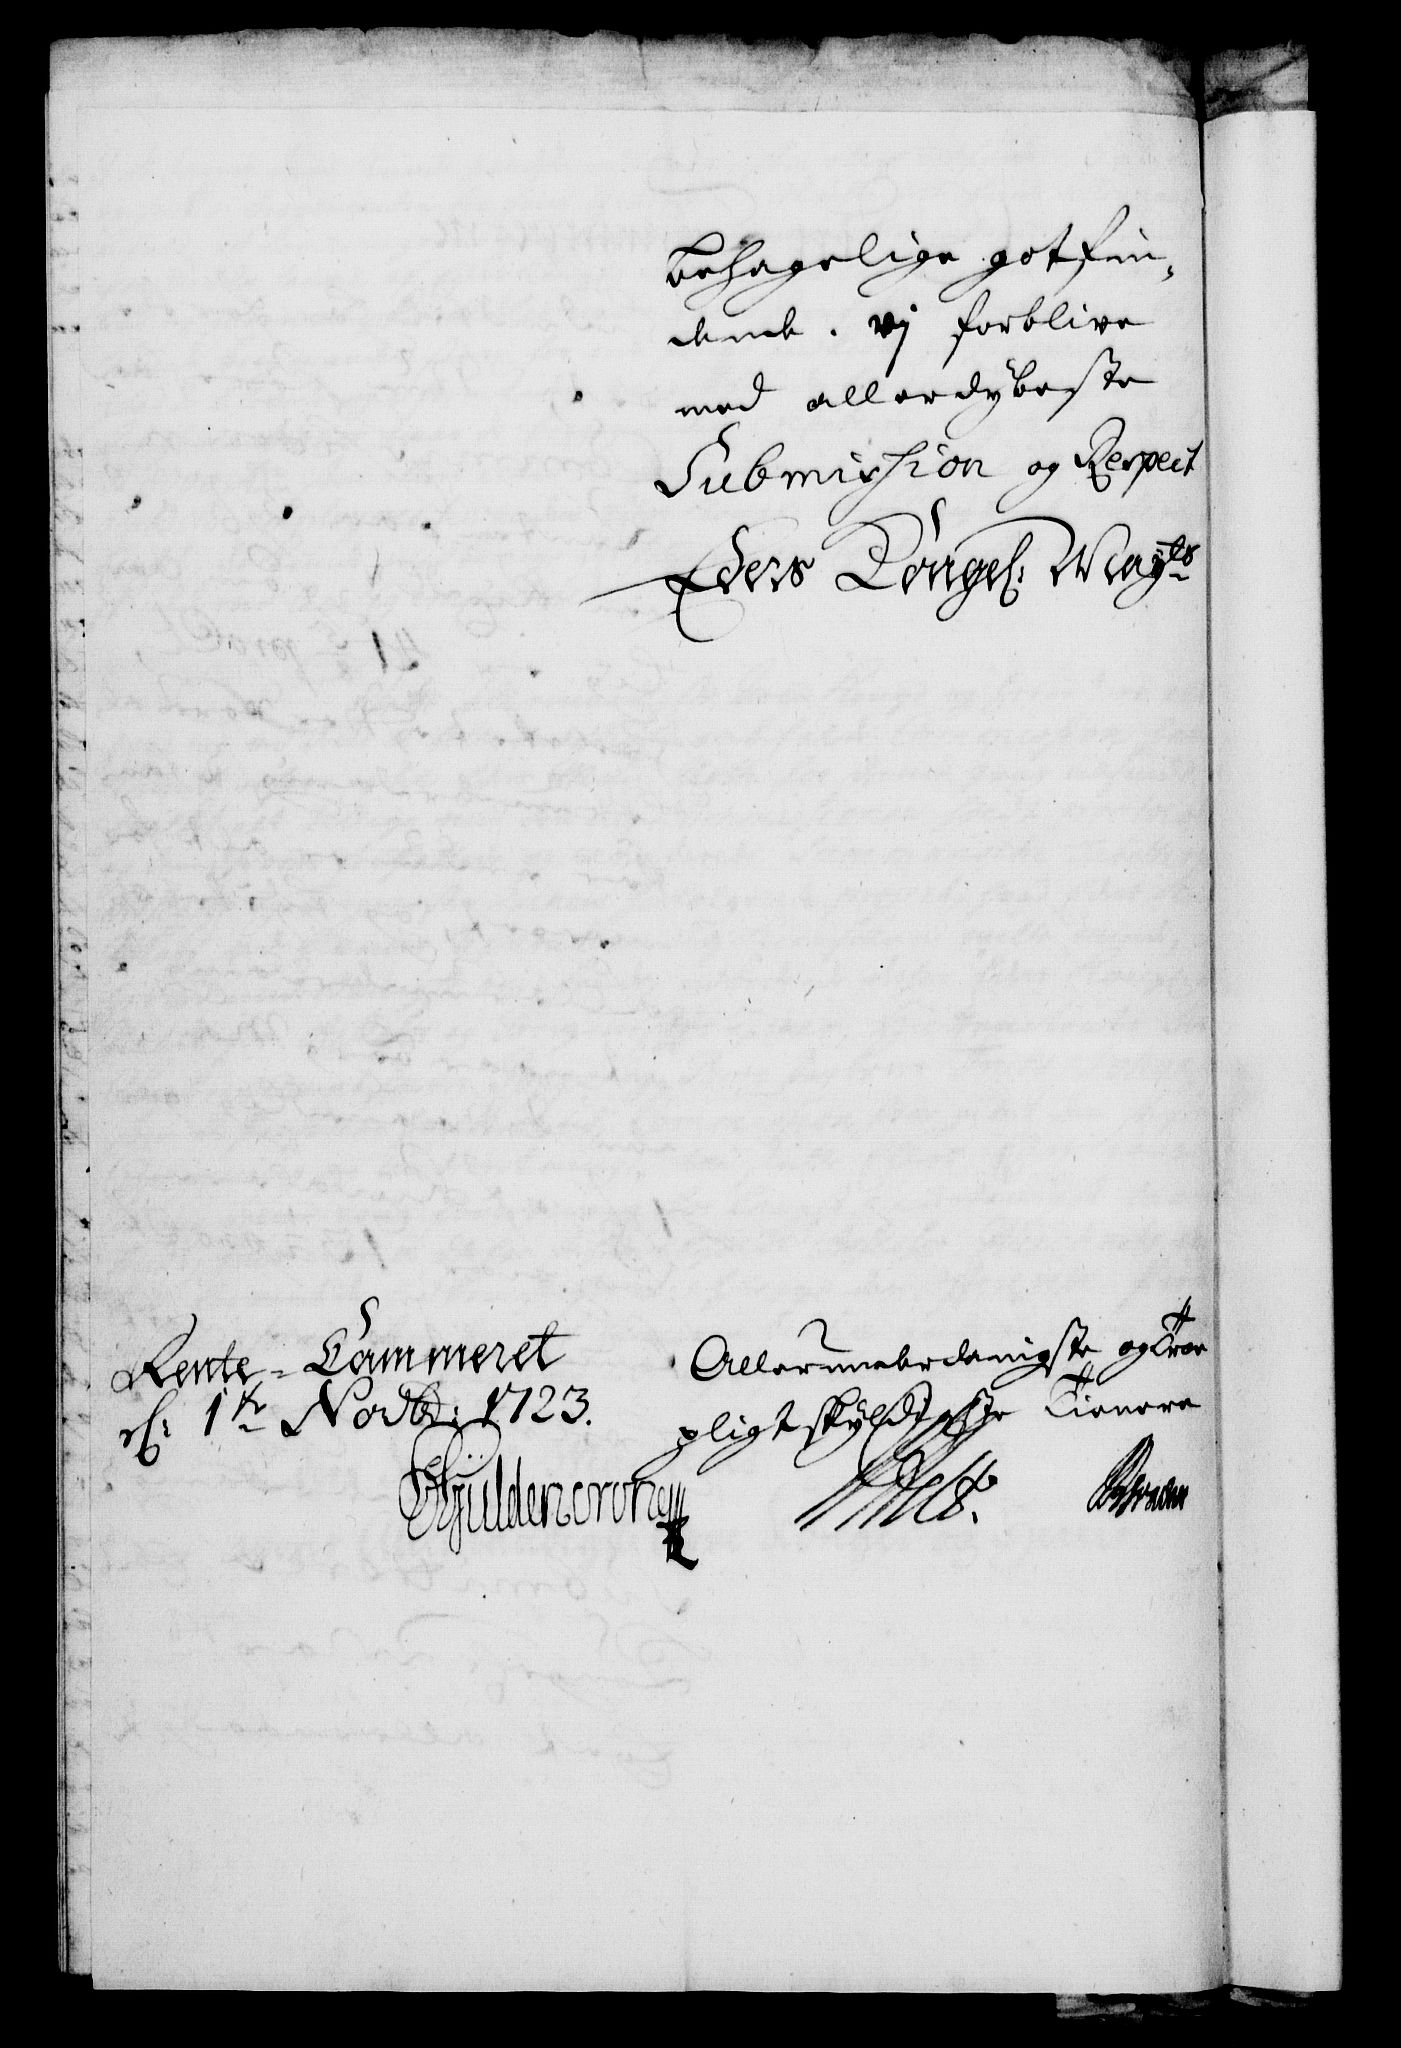 behagelige gotfin-
dende. vi forblive
med allerdybeste
Submission og Respect
Eders Kongel: Mayts
Rente-Cammeret
d: 1te Novb: 1723.
Allerunderdanigste og Troe
pligtskyldigste Tienere
Gyldencrone